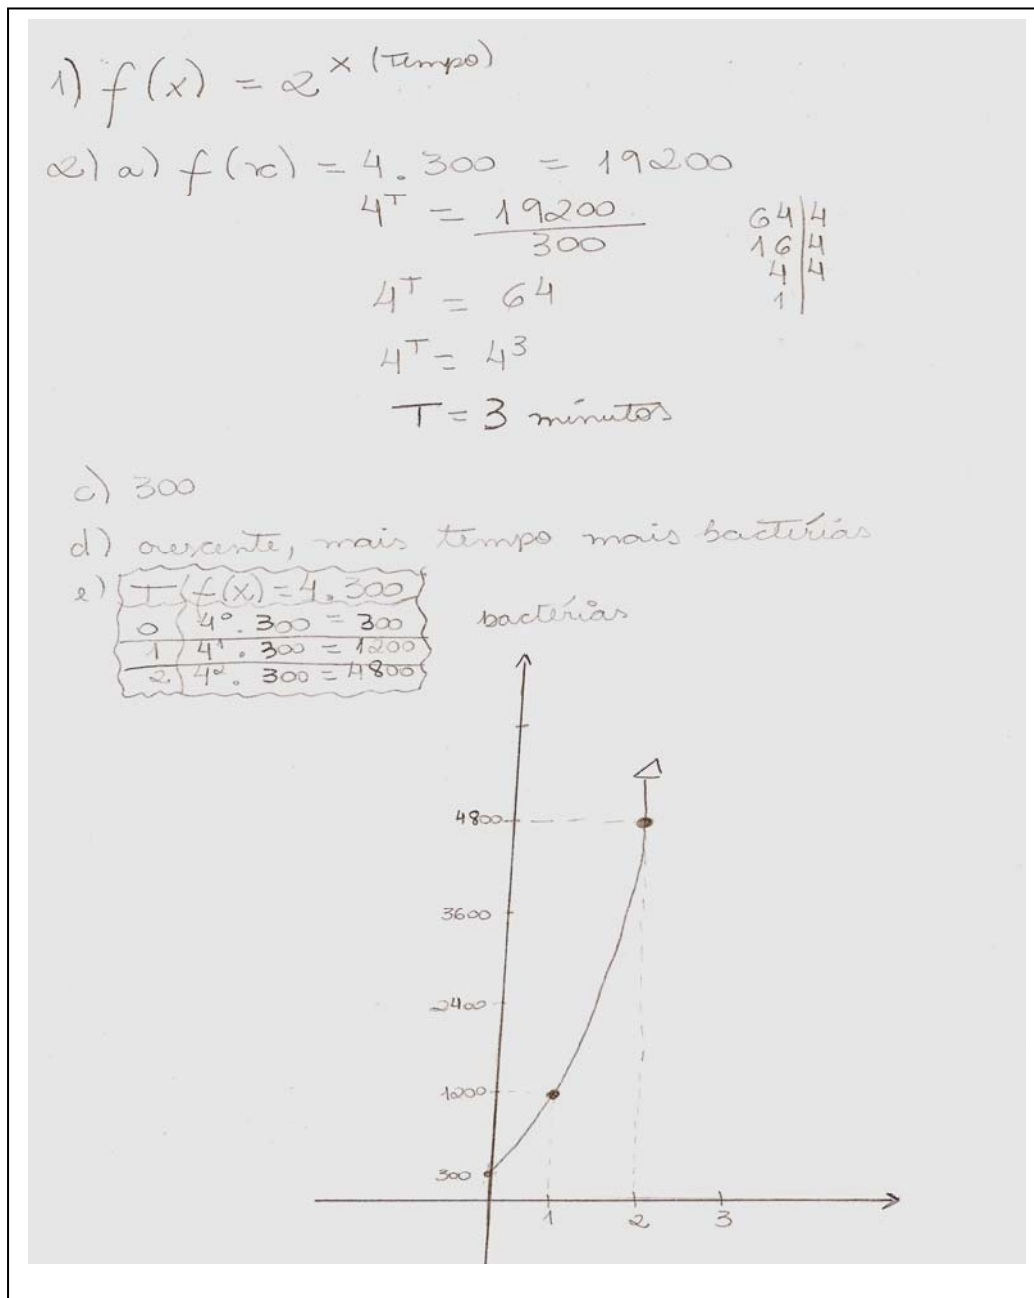 1) f(x) = 2^x (Tempo)
2) a) f(x) = 4.300 = 19200
4^T = 19200/300
64|4
16|4
4|4
1|
4^T = 64
4^T = 4^3
T = 3 minutos
c) 300
d) crescente, mais tempo mais bactérias
e) T f(x) = 4.300
0 4^0. 300 = 300
1 4^1. 300 = 1200
2 4^2. 300 = 4800
bactérias
4800
3600
2400
1200
300
1 2 3